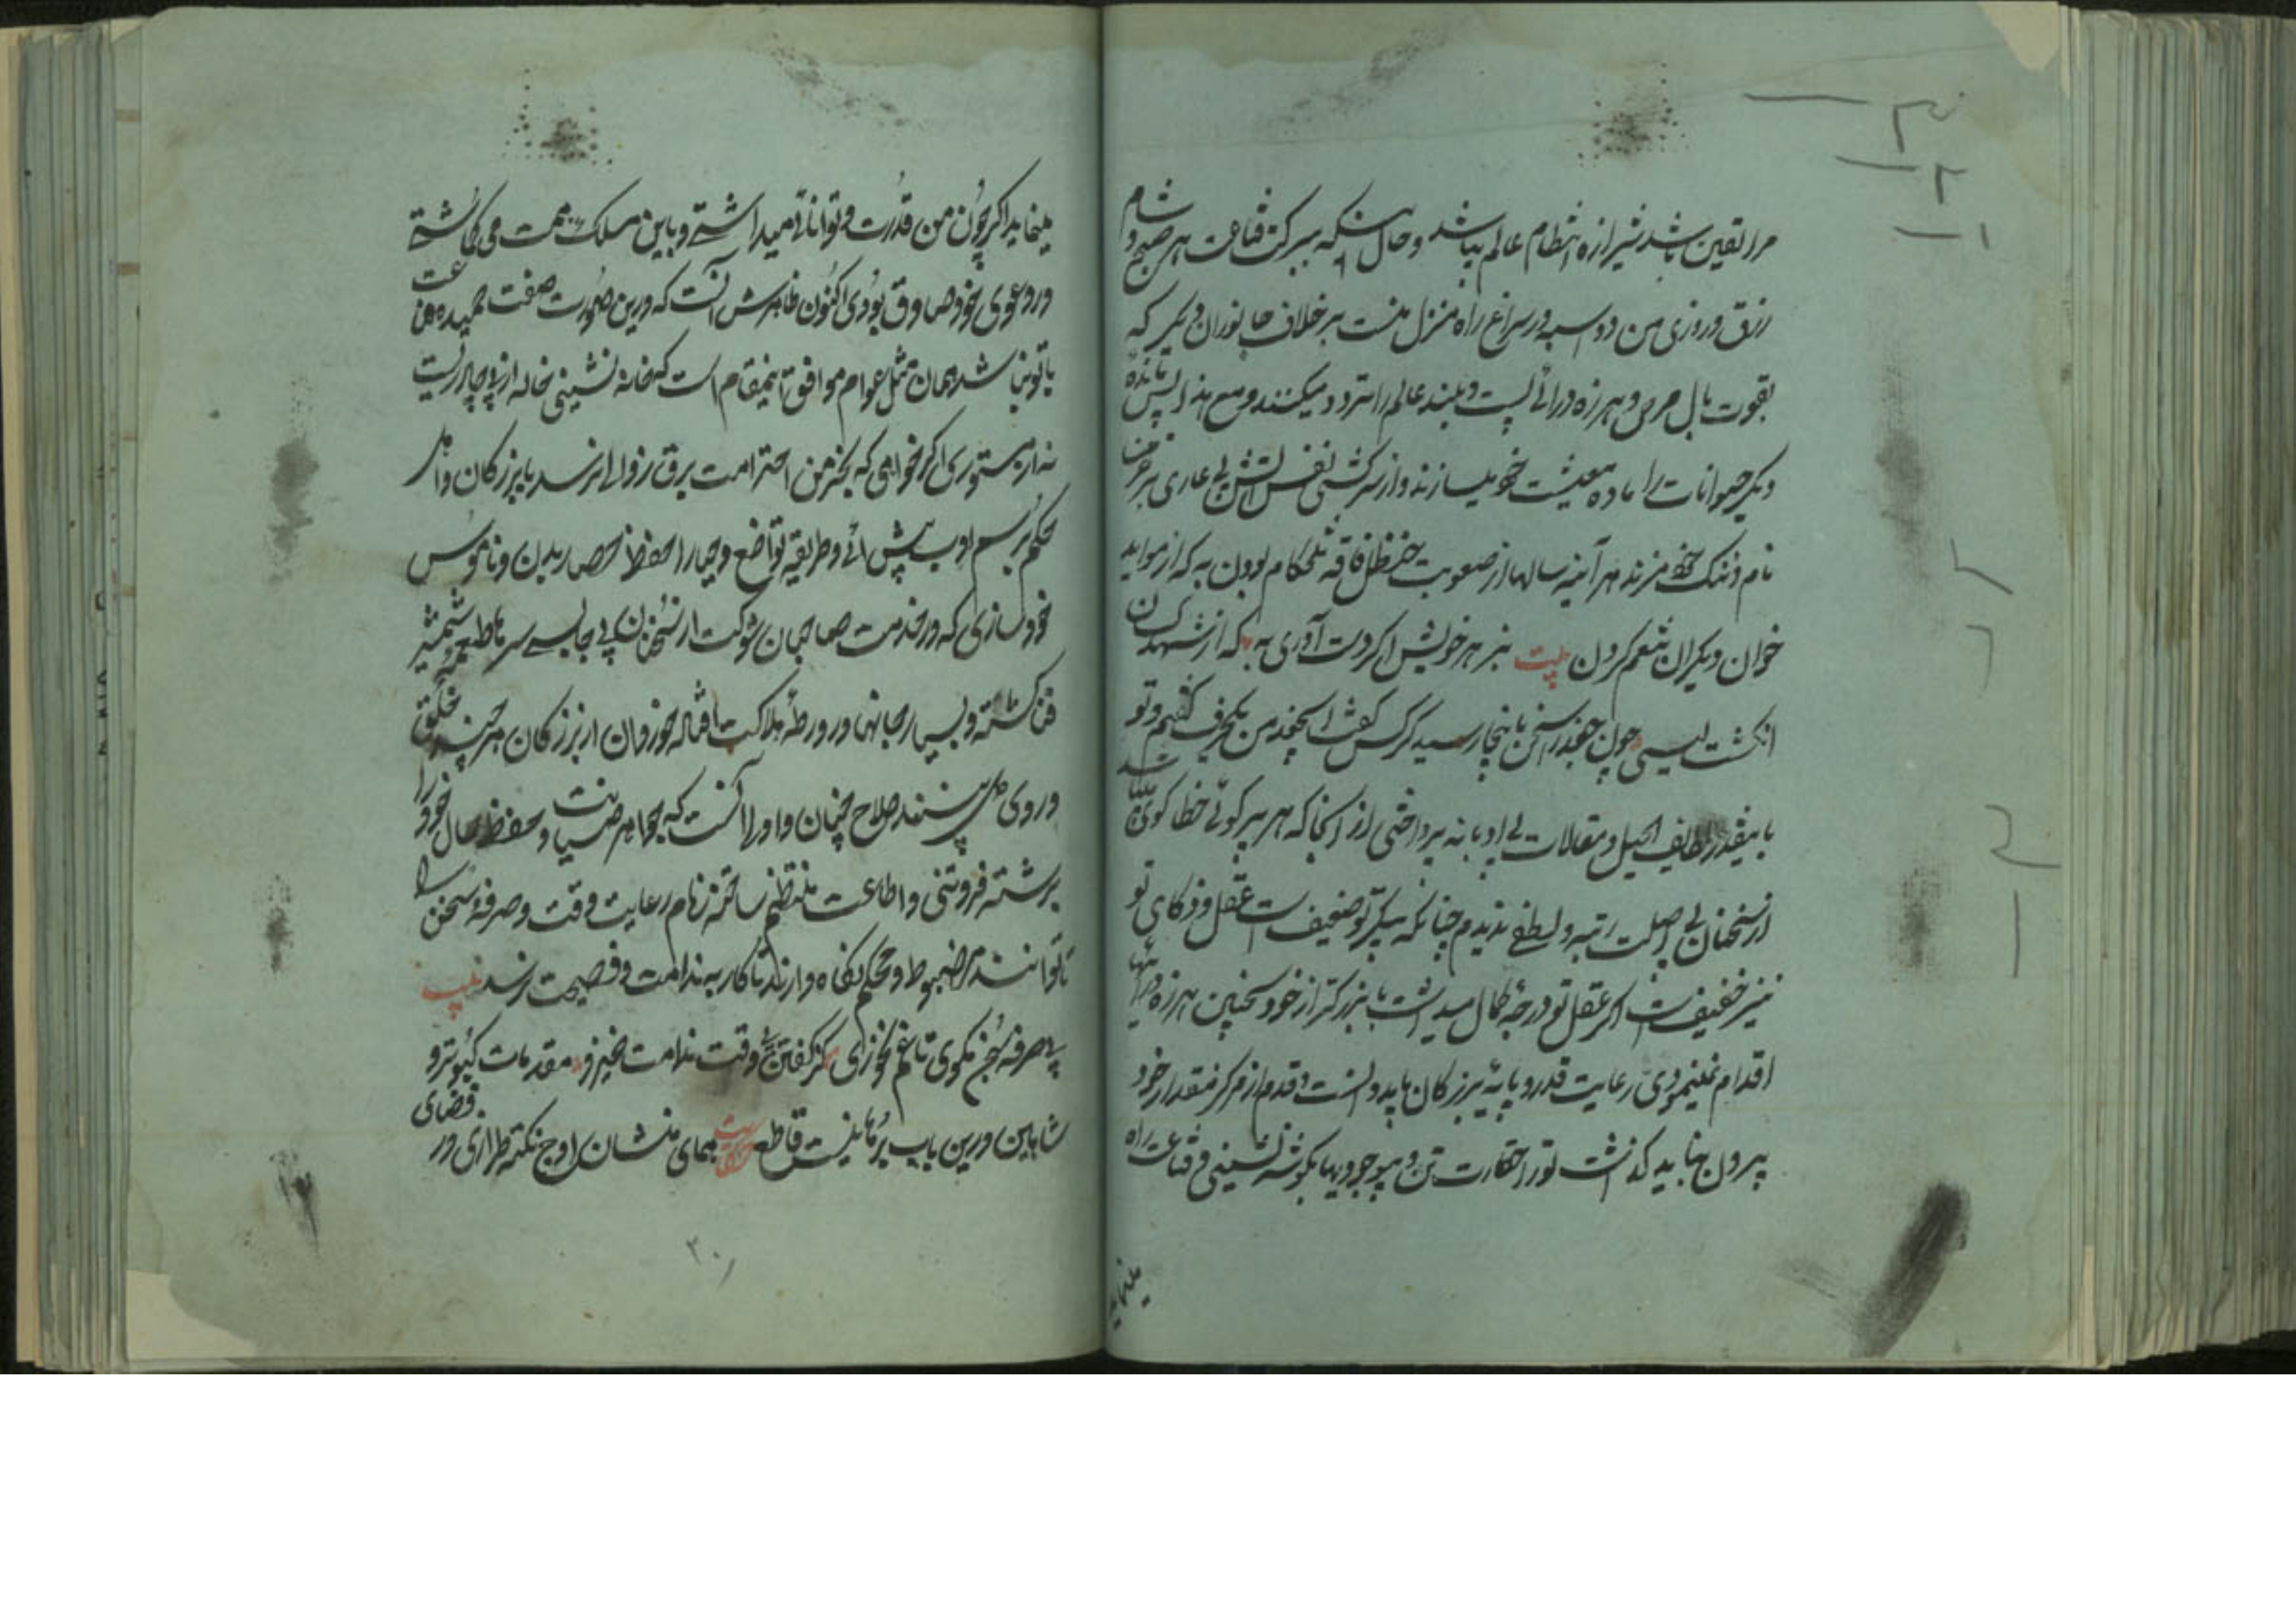 مرا یقین باشد شیرازه انتظام عالم میباشد و حال آنکه ببرکت قناعت هر صبح و شام
رزق و روزی من دو اسپه در سراغ راه منزل منست برخلاف جانوران دیگر که
بقوت بال حرص و هرزه درائی پست و بلند عالم را تردد میکنند و مع هذا پس مانده
دیگر حیوانات را ماده معیشت خود میسازند و از سرکشی نفس آتش بی عاری بر خرمن
نام و ننگ خود میزنند هر آینه سالها از صعوبت حنظل فاقه تلخکام بودن به که از مواید
خوان دیگران متنعم کردن بیت بنز هر خویش اگر دست آوری به که از شهد کسان
انگشت لیسی چون جغد را سخن باینجا رسید کرکس گفت ای جغد من یکحرف گفتم و تو
باینقدر لطایف الحیل و مقالات بی ادبانه پرداختی از آنجا که هر پرگوئی خطا گوی میباشد
از سخنان بی اصلت رتبه و لطفی ندیدم چنانکه پیکر تو ضعیف است عقل و ذکای تو
نیز خفیفست اگر عقل تو درجه کمال میداشت با بزرگتر از خود سخنهای هرزه درائیها
اقدام نمینمودی رعایت قدر و پایه بزرگان باید دانست و قدم از مرکز مقدار خود
بیرون نباید گذاشت تو را حقارت تن و بیوجودیها بگوشه نشینی و قناعت راه
مینماید
مینماید اگر چون من قدرت و توانائی میداشتی و باین مسلک همت می گماشتی
در دعوی خود صادق بودی اکنون ظاهرش آنست که درین صورت صفت حمیده قناعت
با تو نباشد همان مثل عوام موافق اینمقام است که خانه نشینی خاله از بی چادریست
نه از مستوری اگر خواهی که بخرمن احترامت برق زوالی نرسد با بزرگان دانا
محکم برسم ادب پیش آئی و طریقه تواضع و حیا را حفظ حصار بدن و ناموس
خود سازی که در خدمت صاحبان شوکت از سخنان بی جا بسی سرها طعمه شمشیر
فنا گشته و بسی جانها در ورطه هلاکت افتاده خوردان از بزرگان هر چند تخلق
و روی دل بینند صلاح چنان و اولی آنست که جواهر صیانت و حفظ حال خود را
برشته فروتنی و اطاعت منتظم ساخته زمام رعایت وقت و صرفه سخن را
تا توانند مضبوط و محکم نگاه دارند تا کار به ندامت و فضیحت نرسد بیت
بی صرفه سخن مگوی تا غم نخوری کز گفتن بیوقت ندامت خیزد مقدمات کبوتر و
شاهین درین باب برهانیست قاطع حکایت همای منشان اوج نکته طرازی در فضای
۲۰